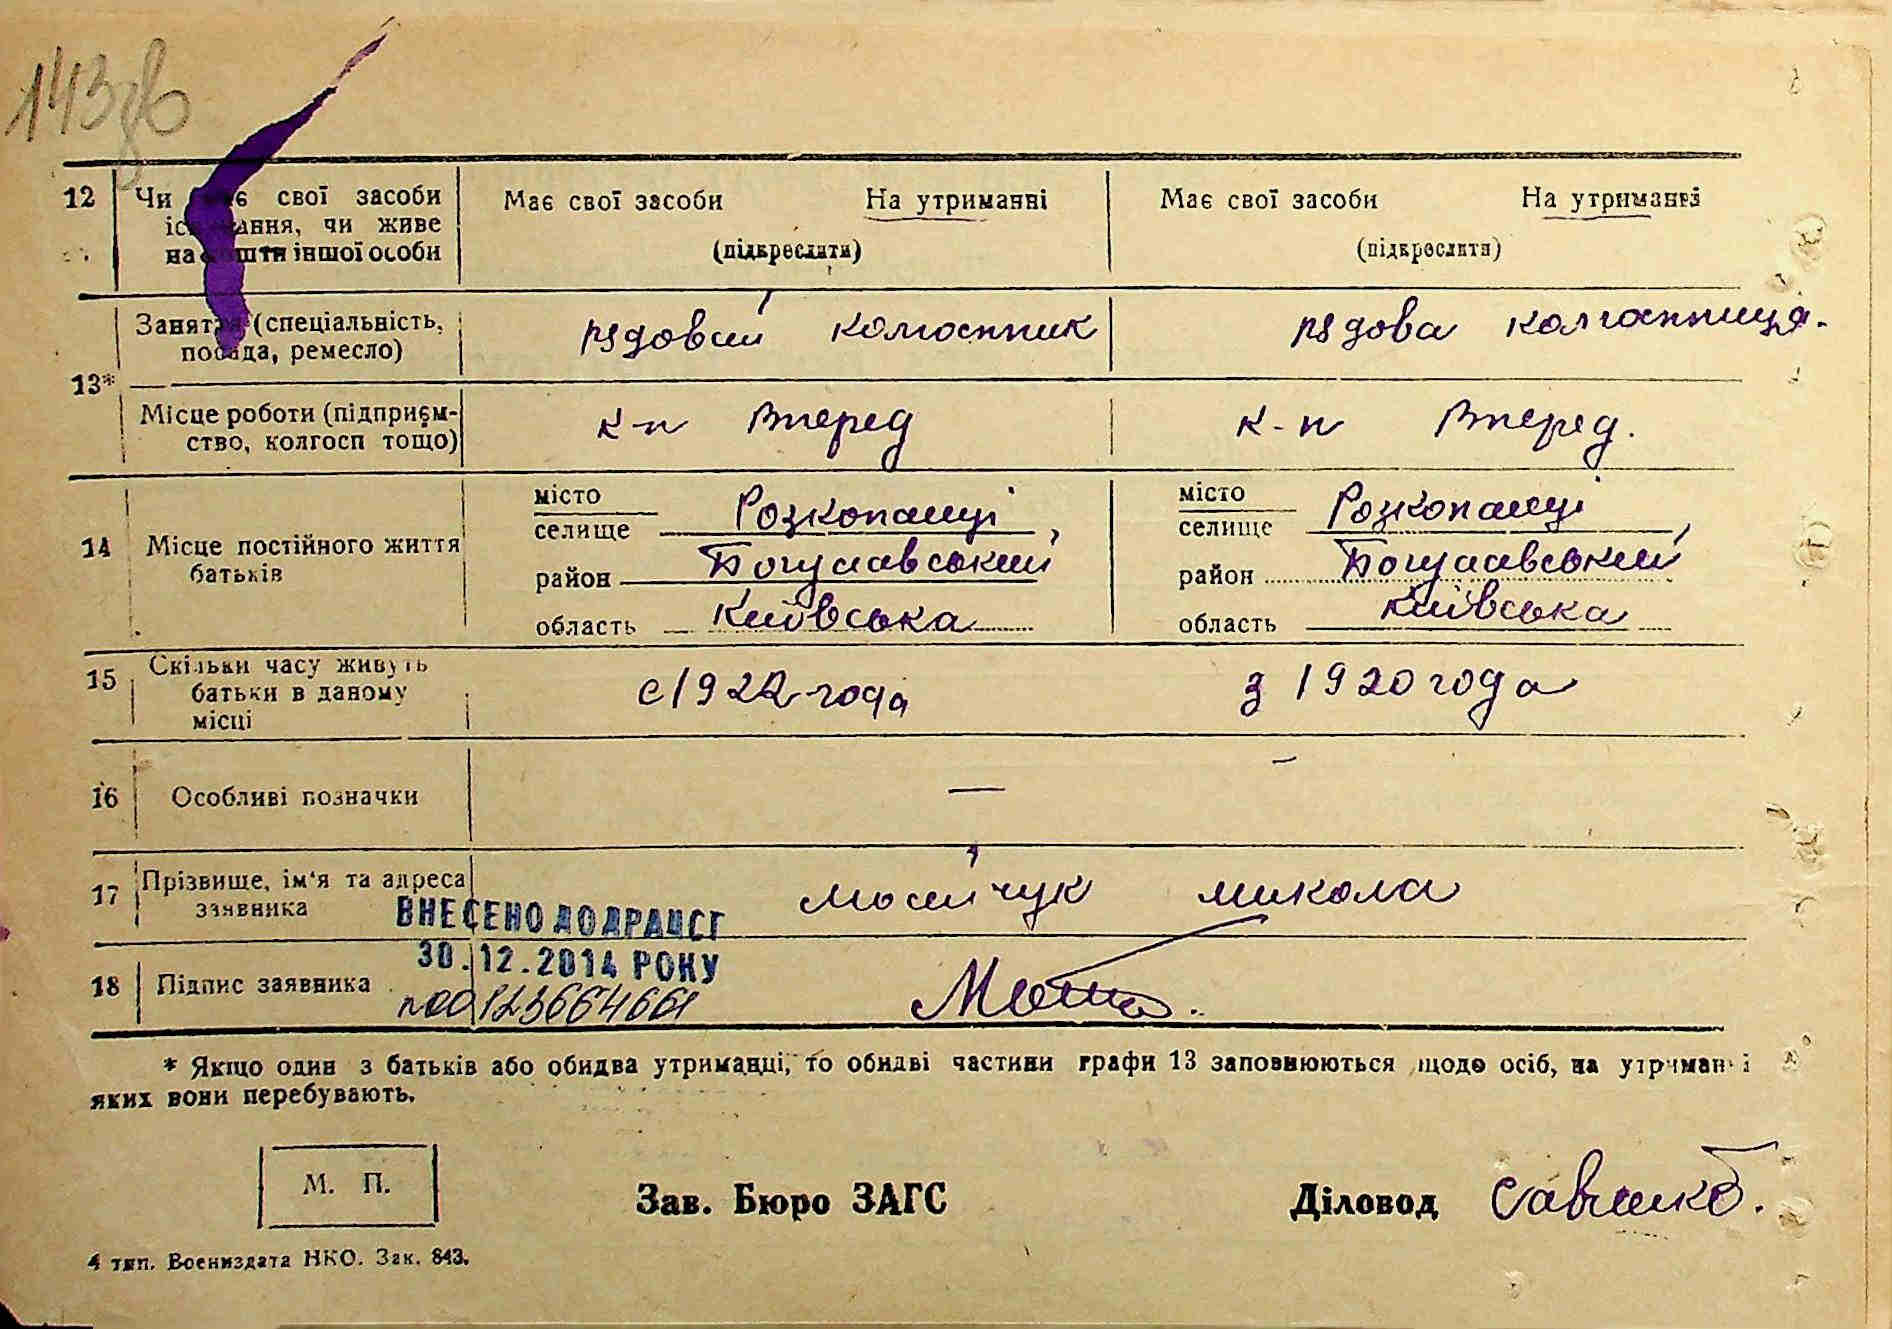 143зв
12 Чи має свої засоби
існування, чи живе
на кошти іншої особи
Має свої засоби На утриманні
(підкреслити)
Має свої засоби На утриманні
(підкреслити)
13*
Заняття (спеціальність,
посада, ремесло)
рядовий колгоспник
рядова колгоспниця.
Місце роботи (підприєм-
ство, колгосп тощо)
к-п Вперед
к-п Вперед.
14 Місце постійного життя
батьків
місто
селище Розкопанці,
район Богуславський
область Київська
місто
селище Розкопанці,
район Богуславський
область Київська
15 Скільки часу живуть
батьки в даному
місці
с 1922 года
з 1920 года
16 Особливі позначки — —
17 Прізвище, ім'я та адреса
заявника
Мосійчук Микола
ВНЕСЕНО ДО ДРАЦСГ
30.12.2014 РОКУ
18 Підпис заявника
№00123664661
* Якщо один з батьків або обидва утриманці, то обидві частини графи 13 заповнюються щодо осіб, на утриманні
яких вони перебувають.
М. П.
Зав. Бюро ЗАГС
Діловод Савченко.
4 тип. Воениздата НКО. Зак. 843.